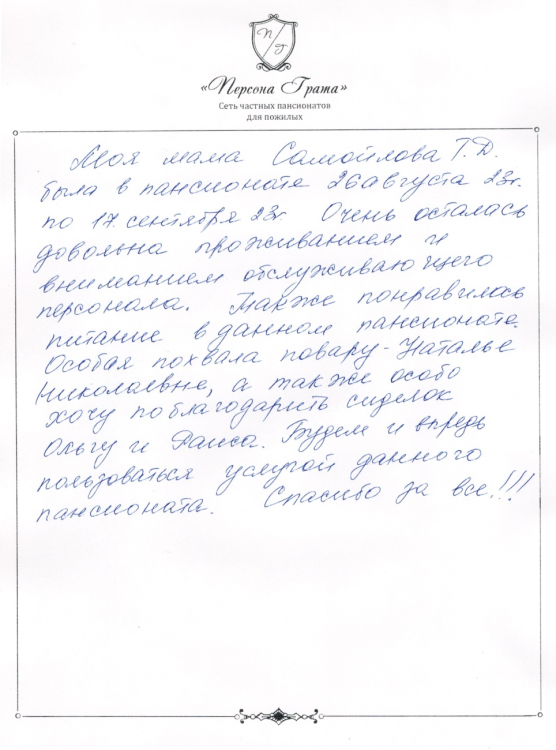 П/Г
«Персона Грата»
Сеть частных пансионатов
для пожилых
Моя мама Самойлова Т.Д.
была в пансионате 26 августа 23г.
по 17. сентября 23г. Очень осталась
довольна проживанием и
вниманием обслуживающего
персонала. Также понравилось
питание в данном пансионате.
Особая похвала повару - Наталье
Николаевне, а также особо
хочу поблагодарить сиделок
Ольгу и Раиса. Будем и впредь
пользоваться услугой данного
пансионата. Спасибо за все!!!